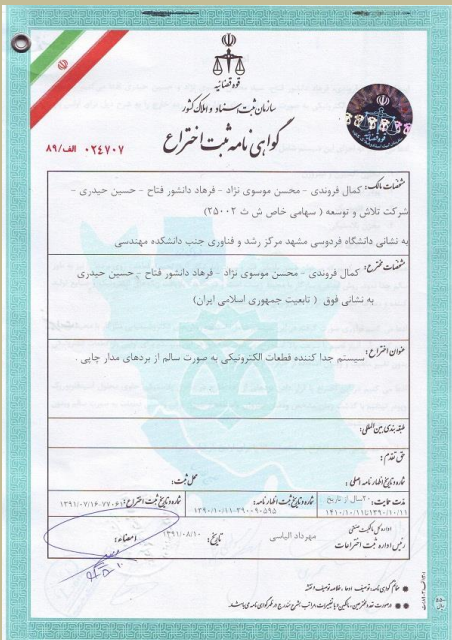 قوه قضائیه
سازمان ثبت اسناد و املاک کشور
گواهی نامه ثبت اختراع
الف/۸۹ ۰۲۴۷۰۷
مشخصات مالک: کمال فروندی - محسن موسوی نژاد - فرهاد دانشور فتاح - حسین حیدری -
شرکت تلاش و توسعه ( سهامی خاص ش ث ۳۵۰۰۲)
به نشانی دانشگاه فردوسی مشهد مرکز رشد و فناوری جنب دانشکده مهندسی
مشخصات مخترع: کمال فروندی - محسن موسوی نژاد - فرهاد دانشور فتاح - حسین حیدری
به نشانی فوق ( تابعیت جمهوری اسلامی ایران)
عنوان اختراع: سیستم جدا کننده قطعات الکترونیکی به صورت سالم از بردهای مدار چاپی .
طبقه بندی بین المللی:
حق تقدم:
شماره و تاریخ اظهارنامه اصلی: محل ثبت:
مدت حمایت: ۲۰سال از تاریخ شماره و تاریخ ثبت اظهارنامه: شماره و تاریخ ثبت اختراع:
۱۳۹۰/۱۰/۱۱تا۱۴۱۰/۱۰/۱۱ ۱۳۹۰/۱۰/۱۱-۳۹۰۰۹۰۵۹۵ ۱۳۹۱/۰۷/۱۶-۷۷۰۶۱
اداره کل مالکیت صنعتی
رئیس اداره ثبت اختراعات مهرداد الیاسی تاریخ: ۱۳۹۱/۰۸/۱۰ امضاء: